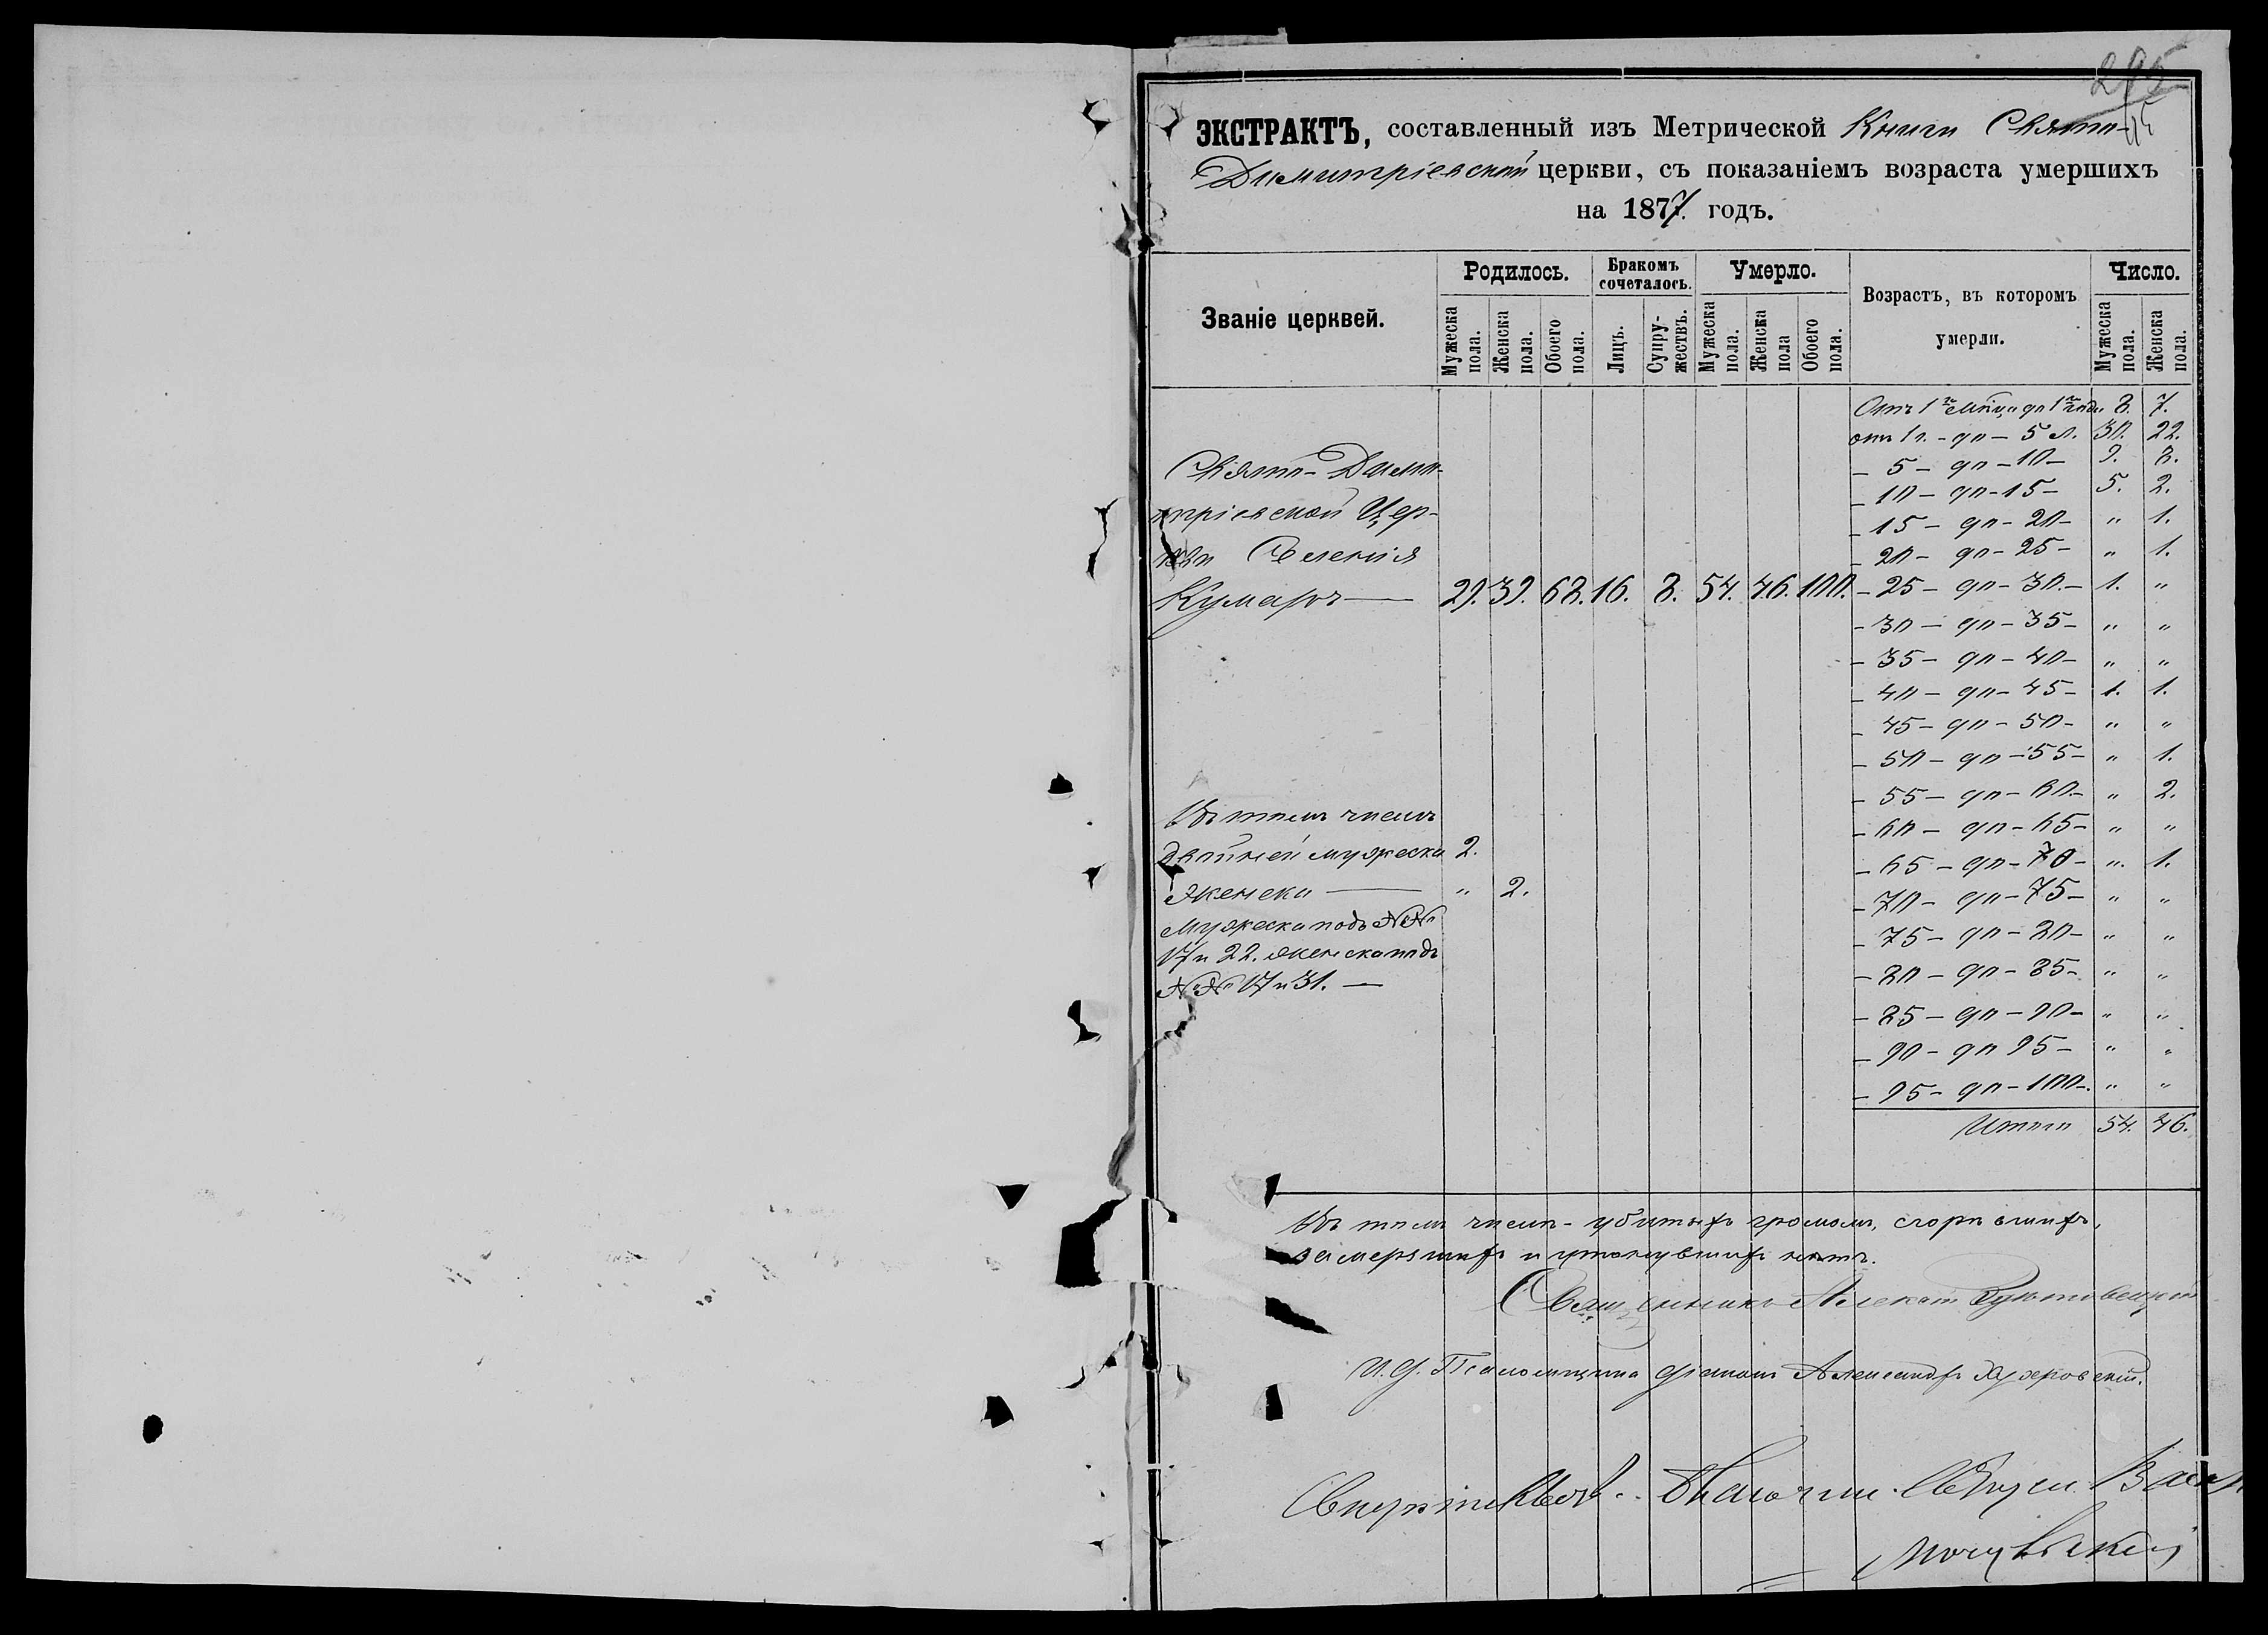 295
ЭКСТРАКТЪ, составленный изъ Метрической Книги Свято-
Димитріевской церкви, съ показаніемъ возраста умершихъ
на 1877. годъ.
Званіе церквей.
Родилось.
Мужеска пола.
Женска пола.
Обоего пола.
Бракомъ сочеталось.
Лицъ.
Супру-жествъ.
Умерло.
Мужеска пола.
Женска пола
Обоего пола.
Возрастъ, въ которомъ
умерли.
Число.
Мужеска пола.
Женска пола.
Отъ 1го мѣсяца до 1го года 8. 7.
отъ 1 г. - до - 5 л. 30. 22.
- 5 - до - 10 - 9. 8.
- 10 - до - 15 - 5. 2.
- 15 - до - 20 - " 1.
- 20 - до - 25 - " 1.
Свято-Дими-
тріевской Цер-
кви Селенія
Кумаръ — 29. 39. 68. 16. 8. 54. 46. 100. - 25 - до - 30. - 1. "
- 30 - до - 35 - " "
- 35 - до - 40 - " "
- 40 - до - 45 - 1. 1.
- 45 - до - 50 - " "
- 50 - до - 55 - " 1.
- 55 - до - 60. - " 2.
- 60 - до - 65 - " "
- 65 - до - 70 - ". 1.
- 70 - до - 75 - " "
- 75 - до - 80 - " "
- 80 - до - 85 - " "
- 85 - до - 90 - " "
- 90 - до 95 - " "
- 95 - до - 100 -. " "
Итого 54. 46.
Въ томъ числѣ
двойней мужеска 2.
женска — " 2.
Мужеска подъ №№
17 и 22. женска подъ
№№ 17 и 31. —
Въ томъ числѣ - убитыхъ громомъ, сгорѣвшихъ,
замерзшихъ и утонувшихъ нѣтъ.
Священникъ
И. д. Псаломщика діаконъ Александръ